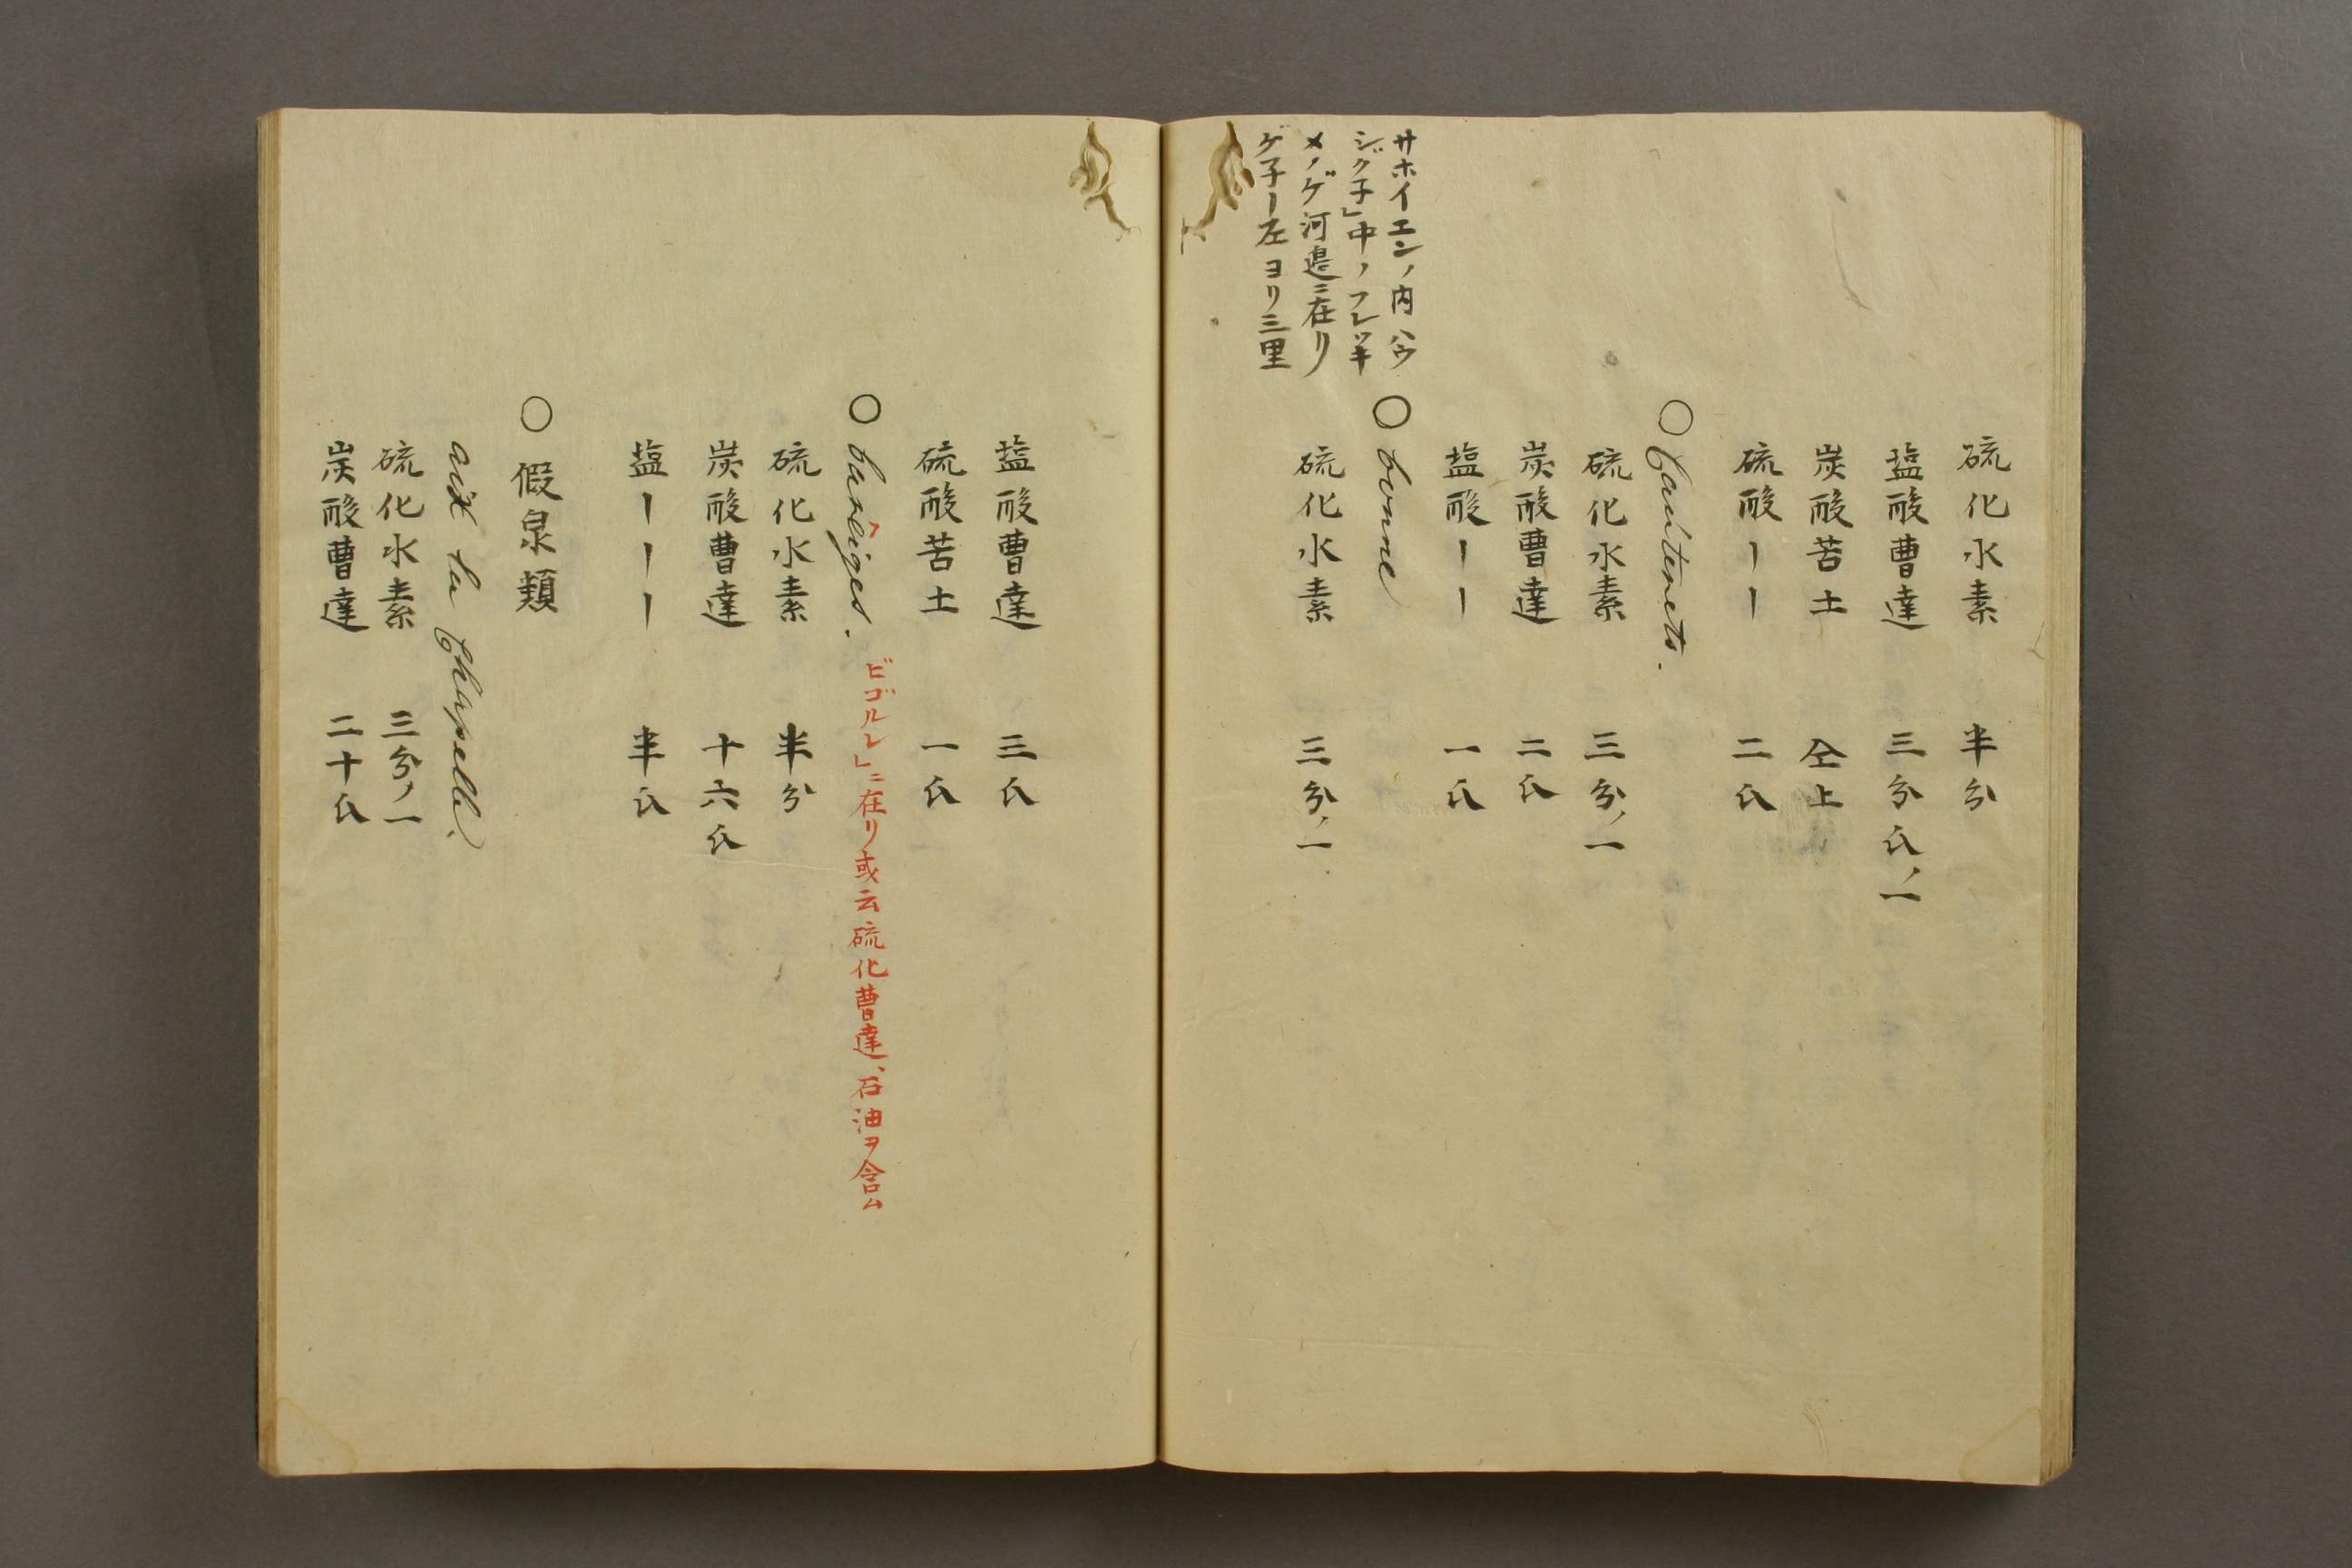 硫化水素 半分
塩酸曹達 三分氏ノ一
炭酸苦土 仝上
硫酸〡〡 二氏
○Cauterets.
硫化水素 三分ノ一
炭酸曹達 二氏
塩酸〡〡 一氏
サホイエンノ内ハウ
シグ子」中ノフレッキ
メノゲ河邉ニ在リ
ゲ子ー左ヨリ三里
○bonne
硫化水素 三分ノ一
塩酸曹達 三氏
硫酸苦土 一氏
○baréiges. ビゴルレ」ニ在リ或云硫化曹達、石油ヲ含ム
硫化水素 半分
炭酸曹達 十六氏
塩〡〡〡 半氏
○假泉類
aix la Chapelle.
硫化水素 三分ノ一
炭酸曹達 二十氏